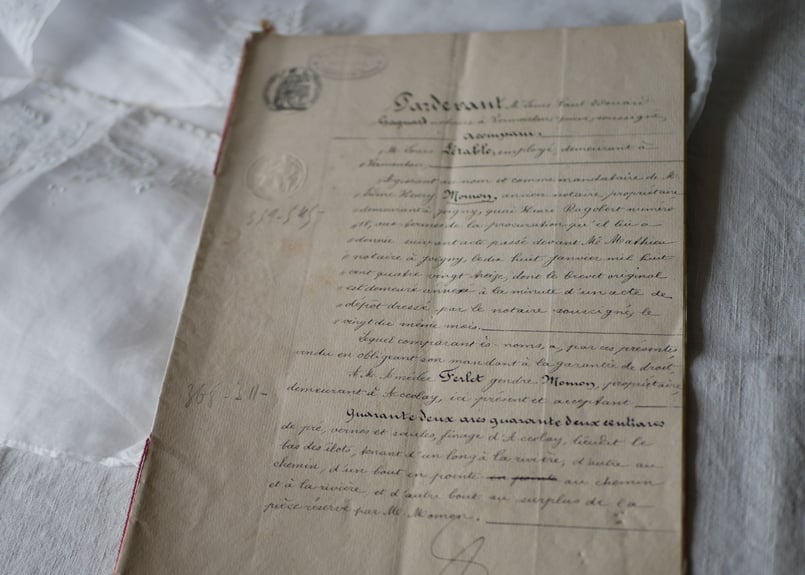 Pardevant Me Louis Paul Edouard
notaire à Vermenton, soussigné,
a comparu:
M. Louis Lérable, employé demeurant à
Vermenton,
Agissant au nom et comme mandataire de M.
Henry Momon, ancien notaire propriétaire
demeurant à Joigny, quai Henri Ragobert numéro
11, aux termes de la procuration qu'il lui a
donnée suivant acte passé devant Me Mathieu
notaire à Joigny, le dix huit janvier mil huit
cent quatre vingt treize, dont le brevet original
est demeuré annexé à la minute d'un acte de
dépôt dressé par le notaire soussigné, le
vingt du même mois.
Lequel comparant ès-noms, a, par ces présentes,
vendu en obligeant son mandant à la garantie de droit
A M. Amédée Ferlet gendre Momon, propriétaire
demeurant à Accolay, ici présent et acceptant
Quarante deux ares quarante deux centiares
de pré, vernes et saules, finage d'Accolay, lieudit le
bas des îlots, tenant d'un long à la rivière, d'autre au
chemin, d'un bout en pointe en pointe au chemin
et à la rivière et d'autre bout au surplus de la
pièce réservé par M. Momon.